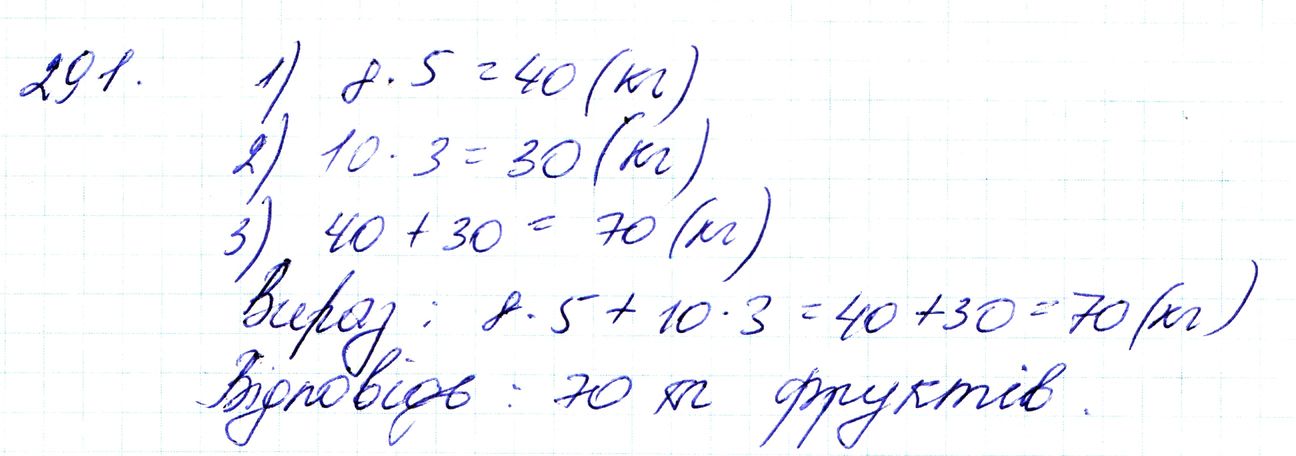 291. 1) 8·5 = 40 (кг)
2) 10·3 = 30 (кг)
3) 40 + 30 = 70 (кг)
Вираз: 8·5 + 10·3 = 40 + 30 = 70 (кг)
Відповідь: 70 кг фруктів.